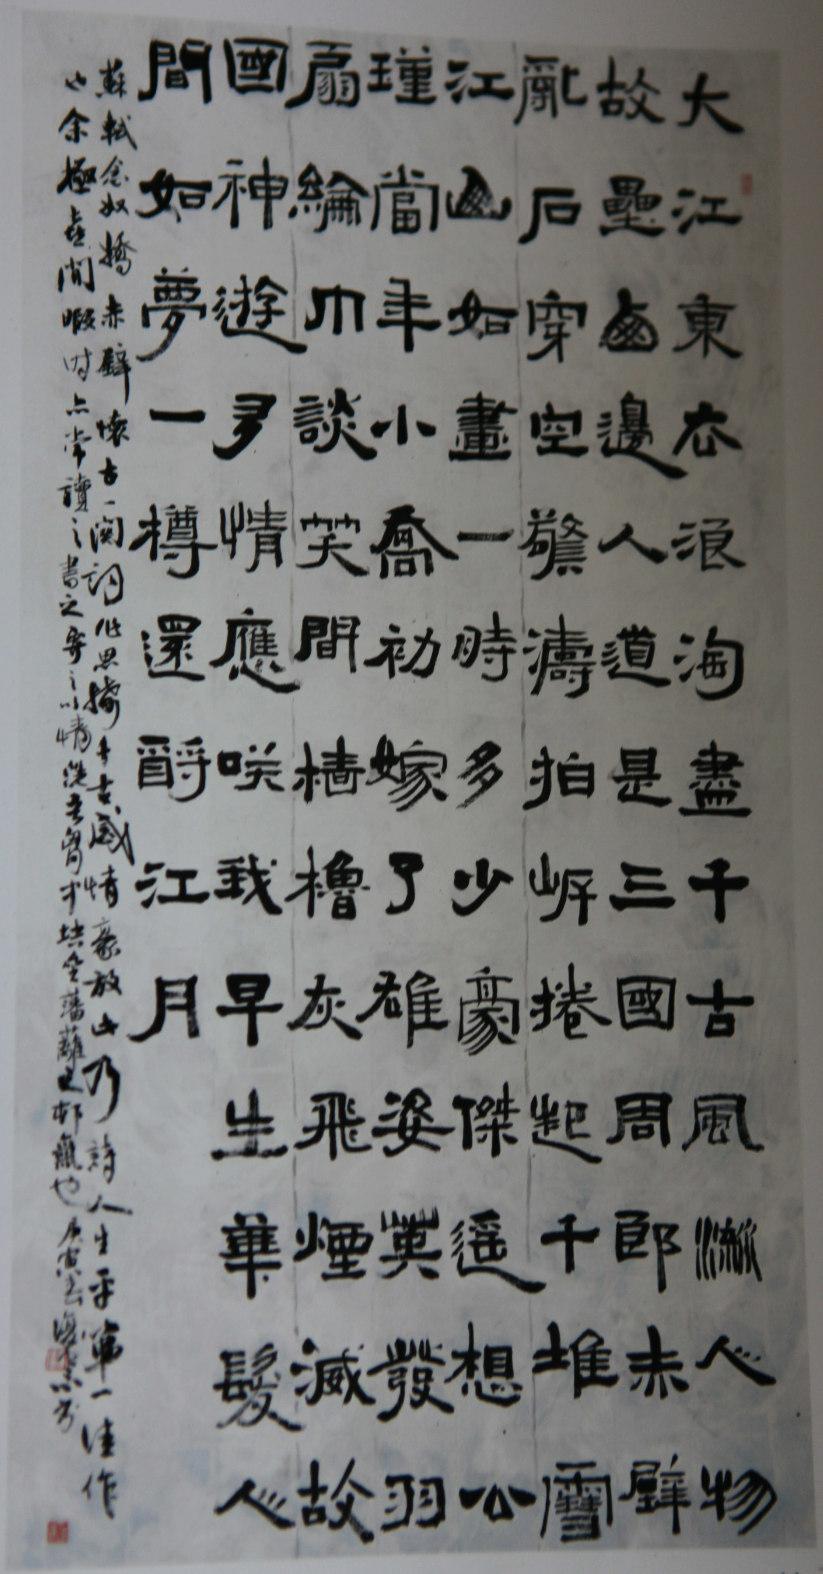 大江東去浪淘盡千古風流人物
故壘西邊人道是三國周郎赤壁
亂石穿空驚濤拍岸捲起千堆雪
江山如畫一時多少豪傑遥想公
瑾當年小喬初嫁了雄姿英發羽
扇綸巾談笑間檣櫓灰飛煙滅故
國神遊多情應咲我早生華髮人
間如夢一樽還酹江月
蘇軾念奴嬌赤壁懷古一闋詞作思接千古風情豪放此乃詩人生平第一佳作
也余極喜閒暇时亦常讀之書之寄之以情